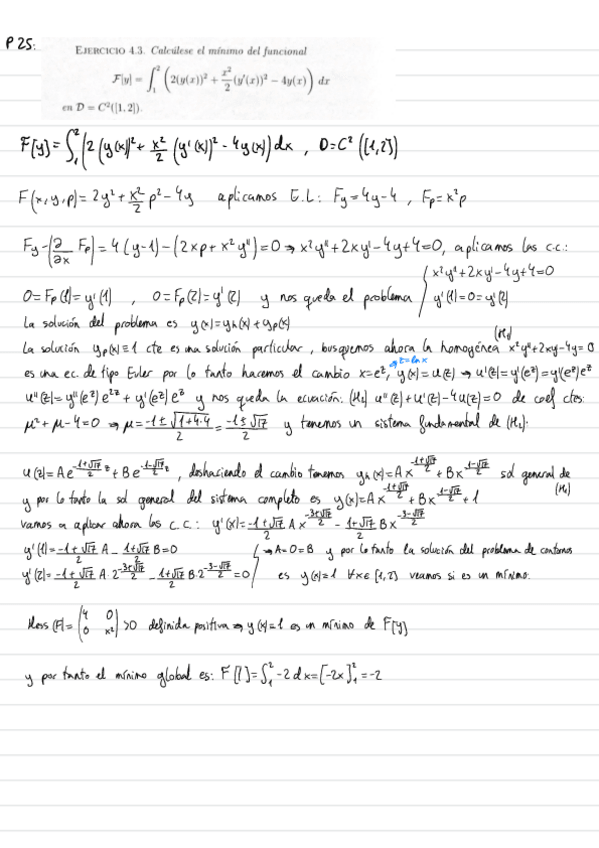 P 25:
EJERCICIO 4.3. Calcúlese el mínimo del funcional
F[y] = ∫₁² (2(y(x))² + x²/2 (y'(x))² − 4y(x)) dx
en D = C²([1,2]).
F[y] = ∫₁² (2(y(x))² + x²/2 (y'(x))² − 4y(x)) dx , D=C²([1,2])
F(x,y,p) = 2y² + x²/2 p² − 4y aplicamos E.L: Fy = 4y−4 , Fp = x²p
Fy − (∂/∂x Fp) = 4(y−1) − (2xp + x²y'') = 0 → x²y'' + 2xy' − 4y + 4 = 0, aplicamos las c.c.:
0 = Fp(1) = y'(1) , 0 = Fp(2) = y'(2) y nos queda el problema { x²y'' + 2xy' − 4y + 4 = 0
y'(1) = 0 = y'(2)
La solución del problema es y(x) = yh(x) + yp(x)
La solución yp(x) ≡ 1 cte es una solución particular, busquemos ahora la homogénea x²y'' + 2xy − 4y = 0 (H1)
es una ec. de tipo Euler por lo tanto hacemos el cambio x = e^z, z = ln x y(x) = u(z) → u'(z) = y'(e^z) = y'(e^z) e^z
u''(z) = y''(e^z) e^2z + y'(e^z) e^z y nos queda la ecuación: (H2) u''(z) + u'(z) − 4u(z) = 0 de coef ctes:
μ² + μ − 4 = 0 → μ = (−1 ± √(1+4·4))/2 = (−1 ± √17)/2 y tenemos un sistema fundamental de (H2):
u(z) = A e^((−1+√17)/2 z) + B e^((−1−√17)/2 z) , deshaciendo el cambio tenemos yh(x) = A x^((−1+√17)/2) + B x^((−1−√17)/2) sol general de (H1)
y por lo tanto la sol general del sistema completo es y(x) = A x^((−1+√17)/2) + B x^((−1−√17)/2) + 1
vamos a aplicar ahora las c.c.: y'(x) = (−1+√17)/2 A x^((−3+√17)/2) − (1+√17)/2 B x^((−3−√17)/2)
y'(1) = (−1+√17)/2 A − (1+√17)/2 B = 0 } → A = 0 = B y por lo tanto la solución del problema de contornos
y'(2) = (−1+√17)/2 A·2^((−3+√17)/2) − (1+√17)/2 B·2^((−3−√17)/2) = 0 es y(x) = 1 ∀x ∈ [1,2] veamos si es un mínimo:
Hess(F) = (4 0
0 x²) > 0 definida positiva → y(x) = 1 es un mínimo de F[y]
y por tanto el mínimo global es: F[1] = ∫₁² −2 dx = [−2x]₁² = −2